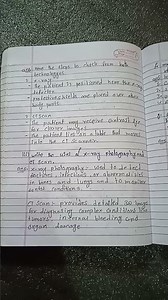 the steps to check from both
technologies.
1. x-ray:-
The patient is positioned near the x-ray
detector
protective shields are placed over other
body parts.
2. ct scan
The patient may receive contrast dye
for clearer images.
The patient lies on a table that moves
into the ct scanner.
the use of x-ray photography and
ct scan.
x-ray photography: used to detect
fractures, infections, or abnormalities
in bones and lungs and to
dental conditions.
ct scan:- provides detailed 3D images
for diagnosing complex conditions like
tumors, internal bleeding and
organ damage.